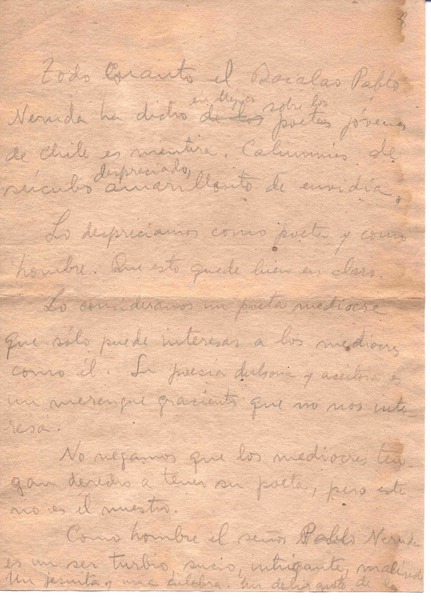 Todo cuanto el Bacalao Pablo
Neruda ha dicho de los sobre los poetas jóvenes
de Chile es mentira. Calumnias de
súcubo despreciado, amarillento de envidia.
Lo despreciamos como poeta y como
hombre. Que esto quede bien en claro.
Lo consideramos un poeta mediocre
que sólo puede interesar a los mediocres
como él. Su poesía dulzona y aceitosa es
un merengue grasiento que no nos inte-
resa.
No negamos que los mediocres ten-
gan derecho a tener su poeta, pero este
no es el nuestro.
Como hombre el señor Pablo Neruda
es un ser turbio, sucio, intrigante,
Un jesuita, una culebra. de la